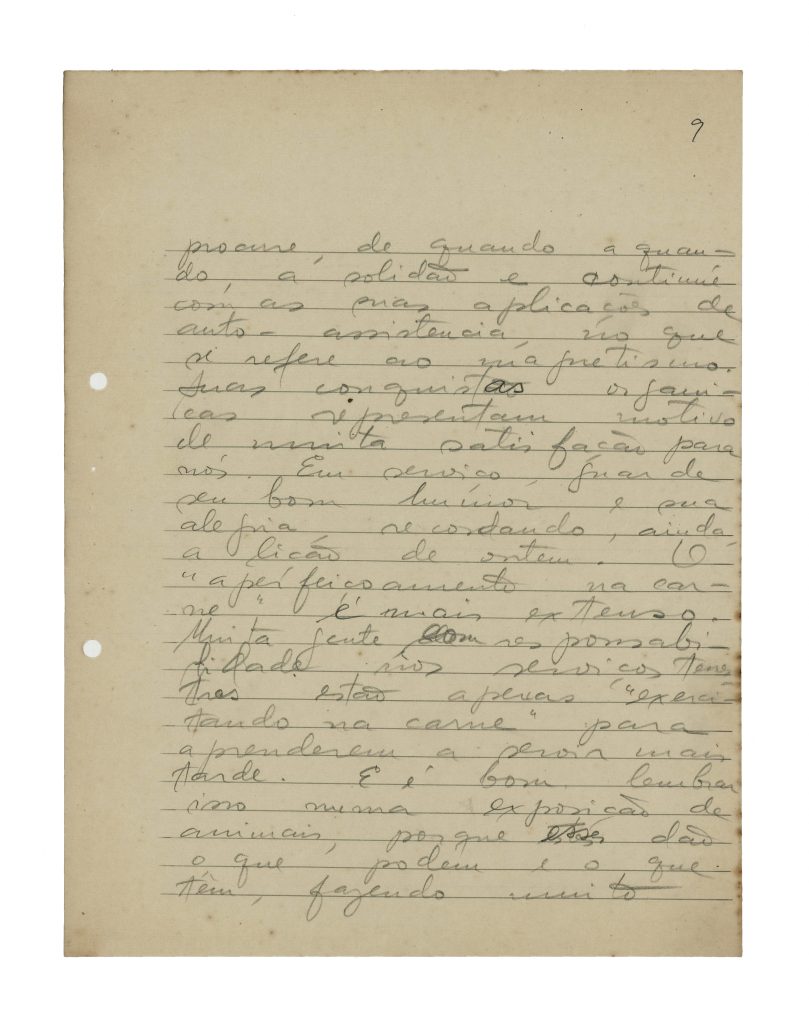 9
procure, de quando a quan-
do, a solidão e continue
com as suas aplicações de
auto-assistencia, no que
se refere ao magnetismo.
Suas conquistas organi-
cas representam motivo
de muita satisfação para
nós. Em serviço, guarde
seu bom humor e sua
alegria, recordando, ainda,
a lição de ontem. O
"aperfeiçoamento na car-
ne" é mais extenso.
Muita gente com responsabi-
lidade nos serviços terres
tres estão apenas "exerci-
tando na carne" para
aprenderem a servir mais
tarde. E é bom lembrar
isso numa exposição de
animais, porque estes dão
o que podem e o que
têm, fazendo muito